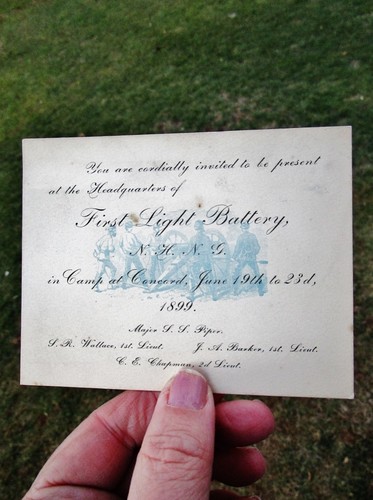 You are cordially invited to be present
at the Headquarters of
First Light Battery,
N. H. N. G.
in Camp at Concord, June 19th to 23d,
1899.
Major S. S. Piper.
S. R. Wallace, 1st. Lieut. J. A. Barker, 1st. Lieut.
C. E. Chapman, 2d Lieut.